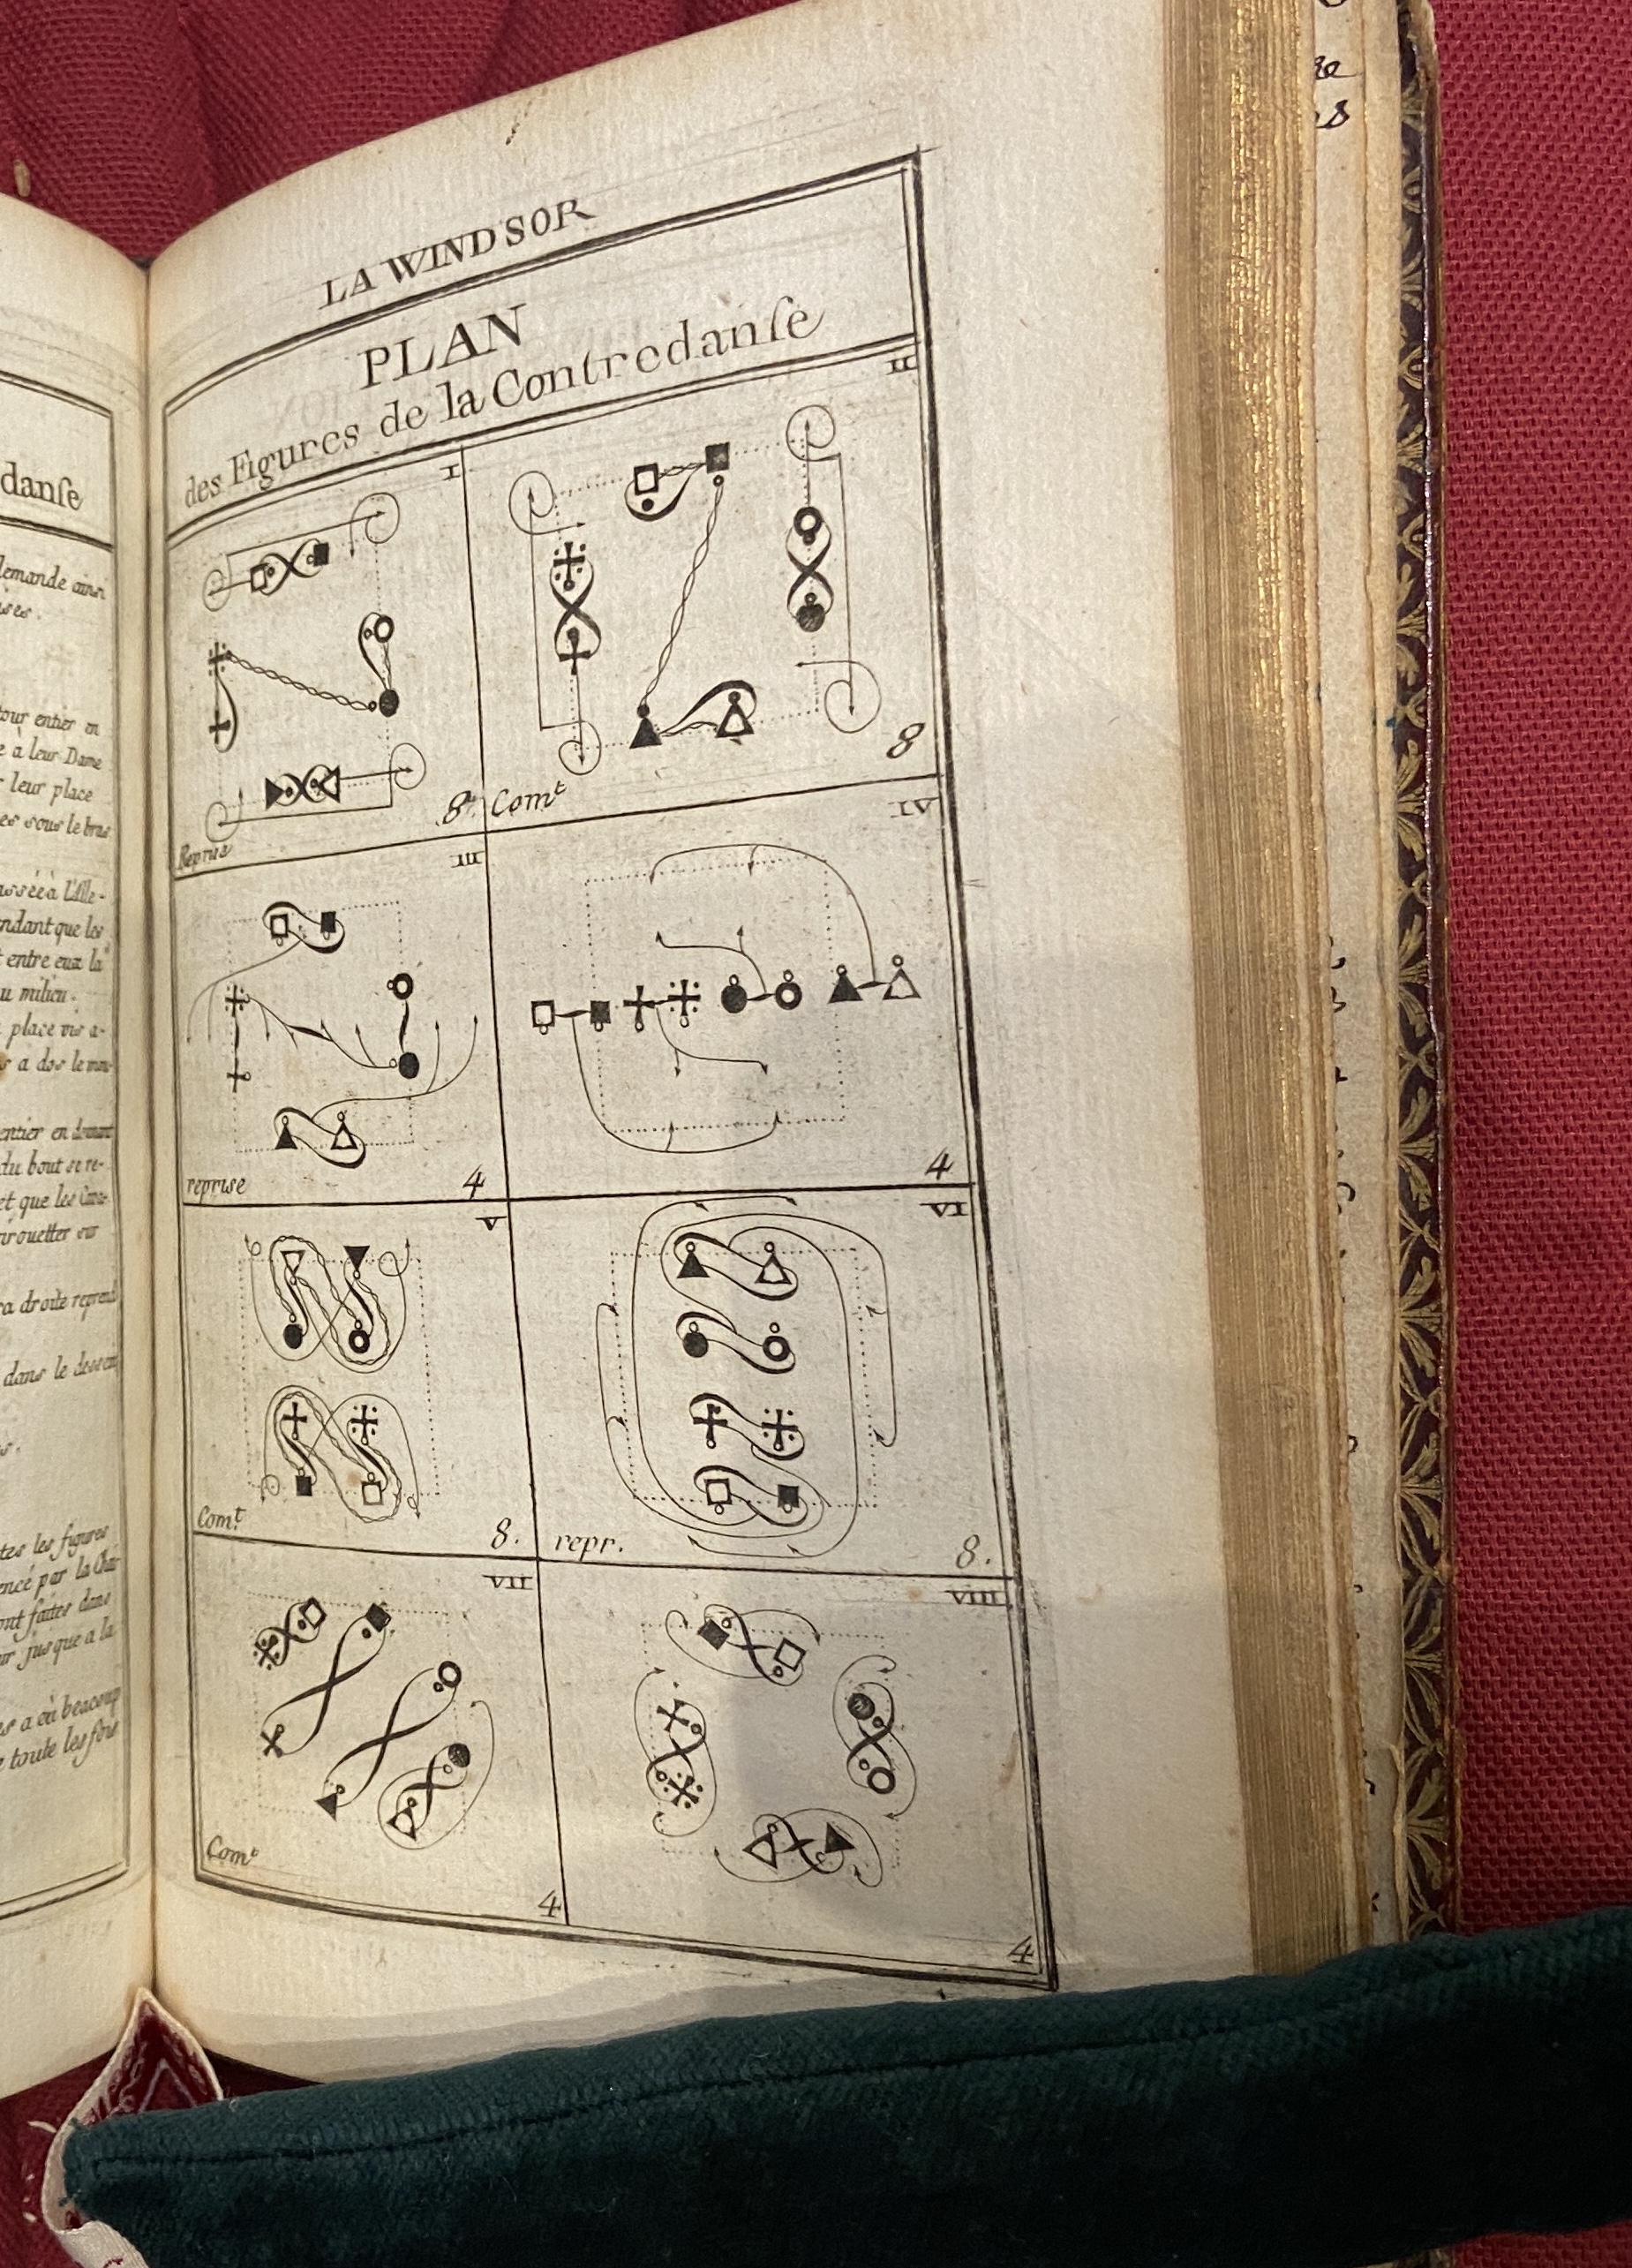 danſe
demande ainsi
ises.
tour entier en
e à leur Dame
r leur place
es sous le bras
assée à l'Alle-
endant que les
t entre eux la
au milieu.
place vis a-
s a dos le mou-
entier en donnant
du bout se re-
et que les Cava-
irouetter sur
ra droite reprend
dans le dessein
s.
tes les figures
encé par la Chai
ont faites dans
ir jusque a la
es a eû beaucoup
e toute les fois
LA WINDSOR
PLAN
des Figures de la Contredanſe
I
Reprise
8.
II
Comt
8
III
reprise
4
IV
4
V
Comt.
8.
VI
repr.
8.
VII
Comt
4
VIII
4